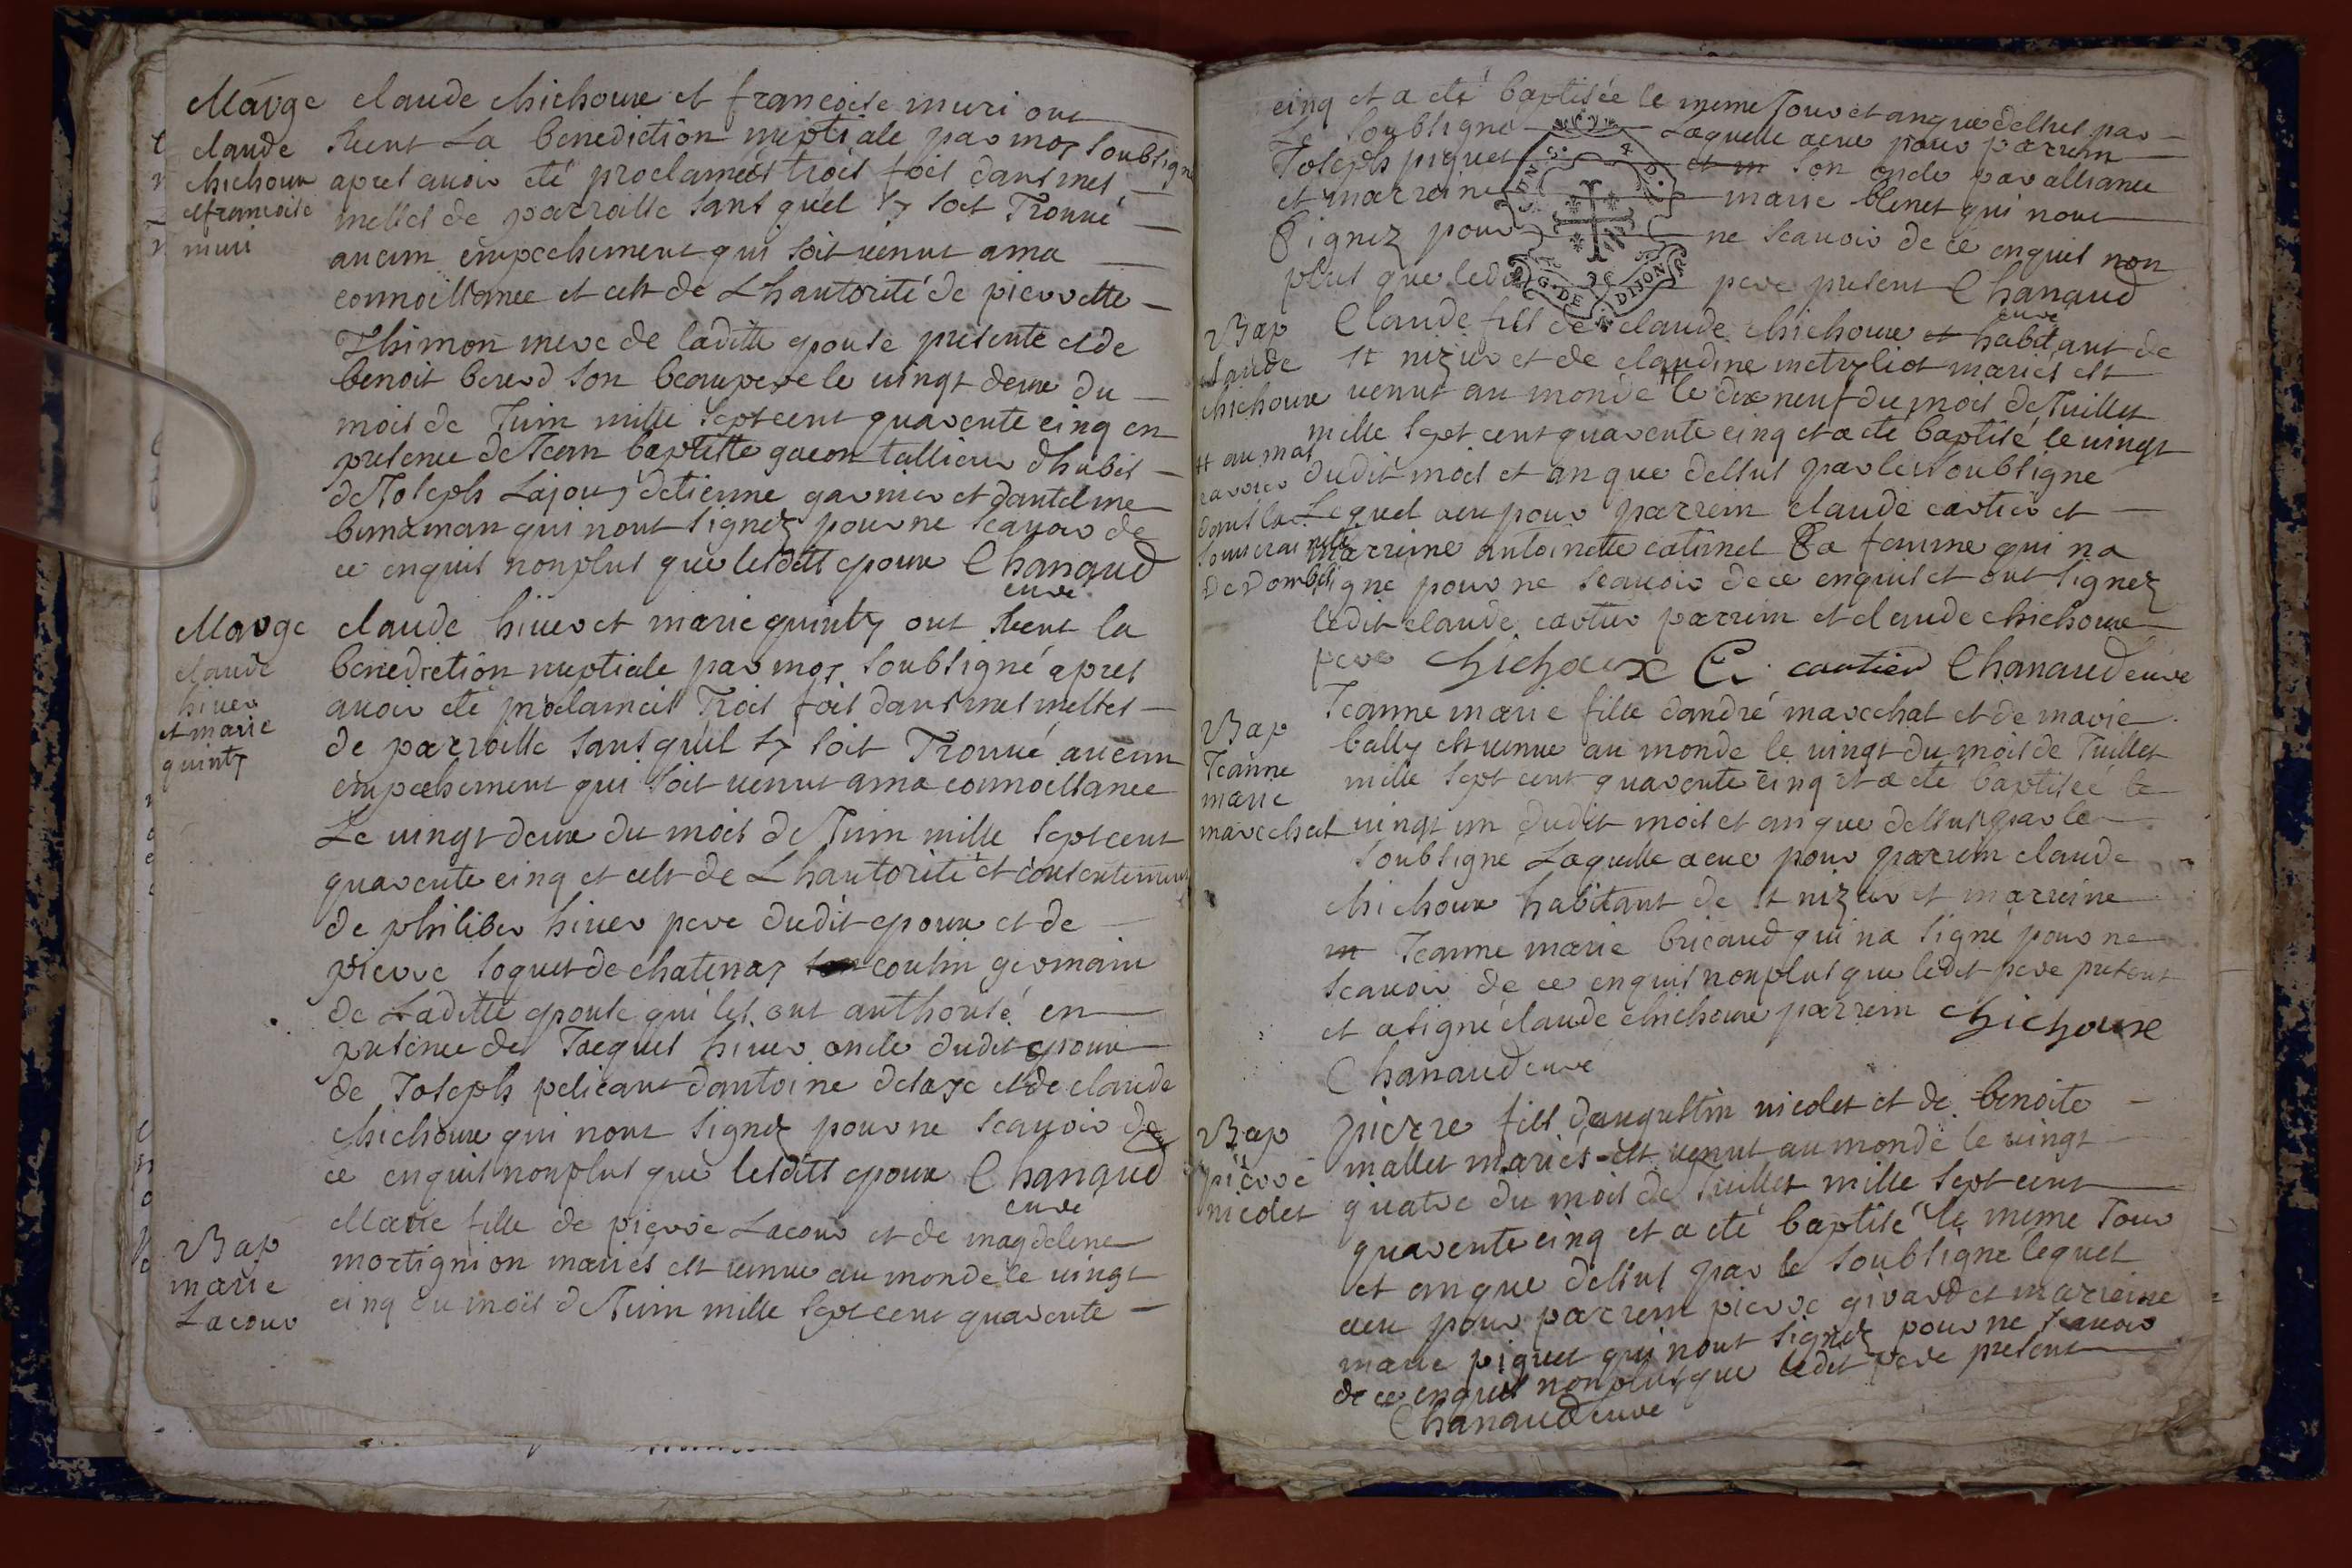 Mavge
claude
chichoux
et francoise
muri
claude chichoux et francoise muri ont
Recut La benediction nuptiale par moy soubsigné
apres avoir eté proclaméés trois fois dans mes
messes de parroisse sans quel sy soit Trouvé
aucun empechement qui soit venut a ma
connoissance et cest de Lhautorité de pierrette
Thimon mere de laditte epouse presente et de
benoit bererd son beaupere le vingt deux du
mois de Juin mille sept cent quarente cinq en
presence de Jean baptiste gacon tallieur dhabis
de Joseph Lajouy detienne garnier et dantelme
bonnaman qui nont signez pour ne scavoir de
ce enquis nonplus que lesdits epoux Chanaud
curé
Mavge
claude
hiver
et marie
quinty
claude hiver et marie quinty ont Recut la
benediction nuptiale par moy soubsigné apres
avoir eté proclamés Trois fois dans mes messes
de parroisse sans quil sy soit Trouvé aucun
empechement qui soit venut a ma connoissance
Le vingt deux du mois de Juin mille sept cent
quarente cinq et cest de Lhautorité et consentement
de philiber hiver pere dudit epoux et de
pierre soquet de chatenay cousin germain
de Laditte epouse qui les ont authorisé en
presence de Jacques hiver oncle dudit epoux
de Joseph pelicant dantoine delaye et de claude
chichoux qui nont signez pour ne scavoir de
ce enquis nonplus que lesdits epoux Chanaud
curé
Bap
marie
Lacour
Marie fille de pierre Lacour et de magdelene
mortignion mariés est venue au monde le vingt
cinq du mois de Juin mille sept cent quarente
cinq et a eté baptisée le meme Jour et an que dessus par
Le soubsigné Laquelle a eue pour parrein
Joseph piquet et m son oncle par alliance
et marreine marie blenet qui nont
Signez pour ne scavoir de ce enquis non
plus que ledit pere present Chanaud
curé
G. DE DIJON
Bap
claude
chichoux
Claude fils de claude chichoux et habitant de
st nizier et de claudine metryliot mariés est
venut au monde # le dix neuf du mois de Juillet
mille sept cent quarente cinq et a eté baptisé le vingt
# au mas
ravier
dans la
souverainete
de Dombe
dudit mois et an que dessus par le soubsigné
Lequel a eu pour parrein claude cartier et
marreine antoinette catinet Sa femme qui na
signe pour ne scavoir de ce enquis et ont signez
ledit claude cartier parrein et claude chichoux
pere chichoux C. cartier Chanaud curé
Bap
Jeanne
marie
marechat
Jeanne marie fille dandré marechat et de marie
bally est venue au monde le vingt du mois de Juillet
mille sept cent quarente cinq et a eté baptiseé le
vingt un dudit mois et an que dessus par le
soubsigné Laquelle a eue pour parrein claude
chichoux habitant de st nizier et marreine
m Jeanne marie bricaud qui na signé pour ne
scavoir de ce enquis nonplus que ledit pere present
et a signé claude chichoux parrein chichoux
Chanaud curé
Bap
pierre
nicolet
pierre fils daugustin nicolet et de benoite
mallet mariés est venut au monde le vingt
quatre du mois de Juillet mille sept cent
quarente cinq et a eté baptisé le meme Jour
et an que dessus par le soubsigné lequel
a eu pour parrein pierre girard et marreine
marie piquet qui nont signez pour ne scavoir
de ce enquis nonplus que ledit pere present
Chanaud curé